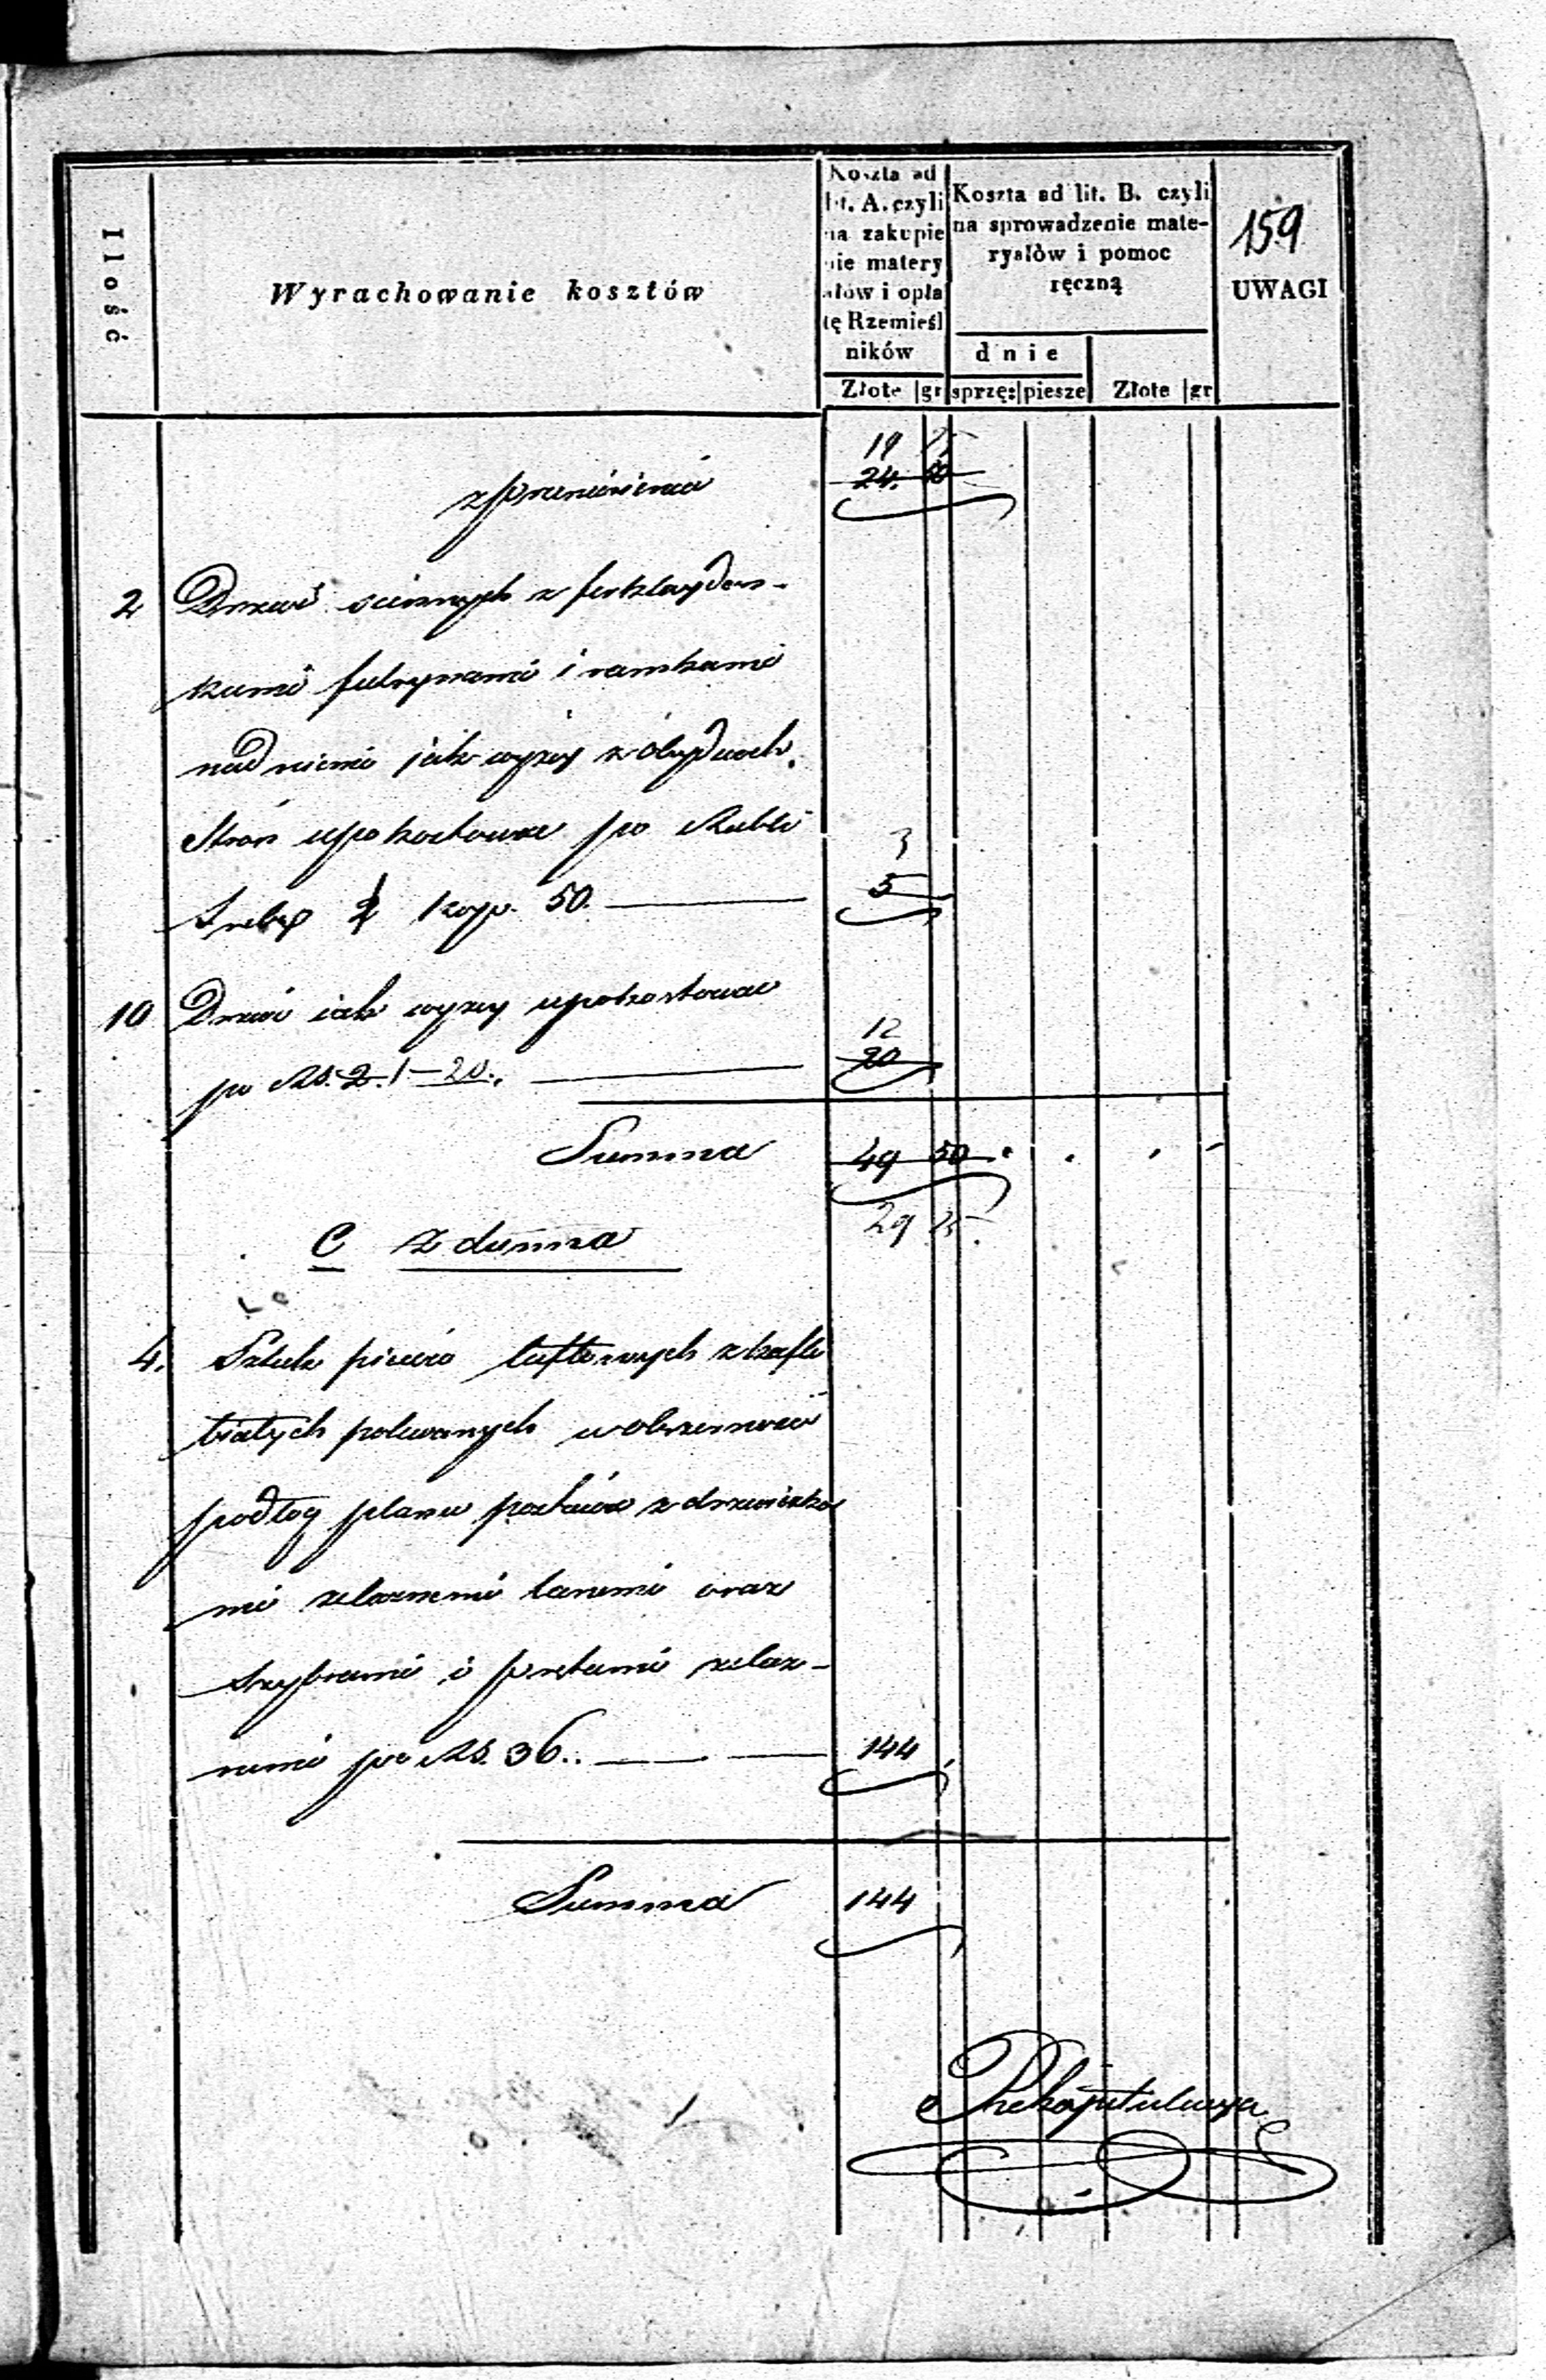 159
Ilość
Wyrachowanie kosztów
Koszta ad
lit. A. czyli
na zakupie
nie matery
ałów i opła
tę Rzemieśl
ników
Koszta ad lit. B. czyli
na sprowadzenie mate-
ryałów i pomoc
ręczną
dnie
UWAGI
Złote gr sprzę: piesze Złote gr
19
z przeniesienia 24. 50
2 Drzwi sciennych z futklayden-
kami futrynami i ramkami
nad niemi jak wyzey z obydwoch
Stron upokostowac po Rubli
3
Srebr 1 kop. 50. 5
10 Drzwi iak wyzey upokostowac
12
po RS. 2. 1-20. 20
Summa 49 50
29 25
C Zdunna
4. Sztuk piecow luftowych z kafli
białych polewanych wobszernosci
podług planu postawic z drzwiczka
mi zelaznemi lanemi oraz
szybrami i prętami zelaz-
nemi po RS. 36. 144
Summa 144
Rekapitulacya